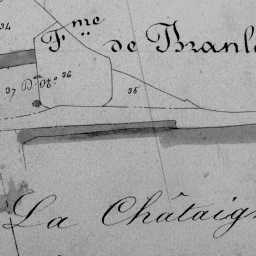 34
F.me de Branl
37 36 36
La Châtaign